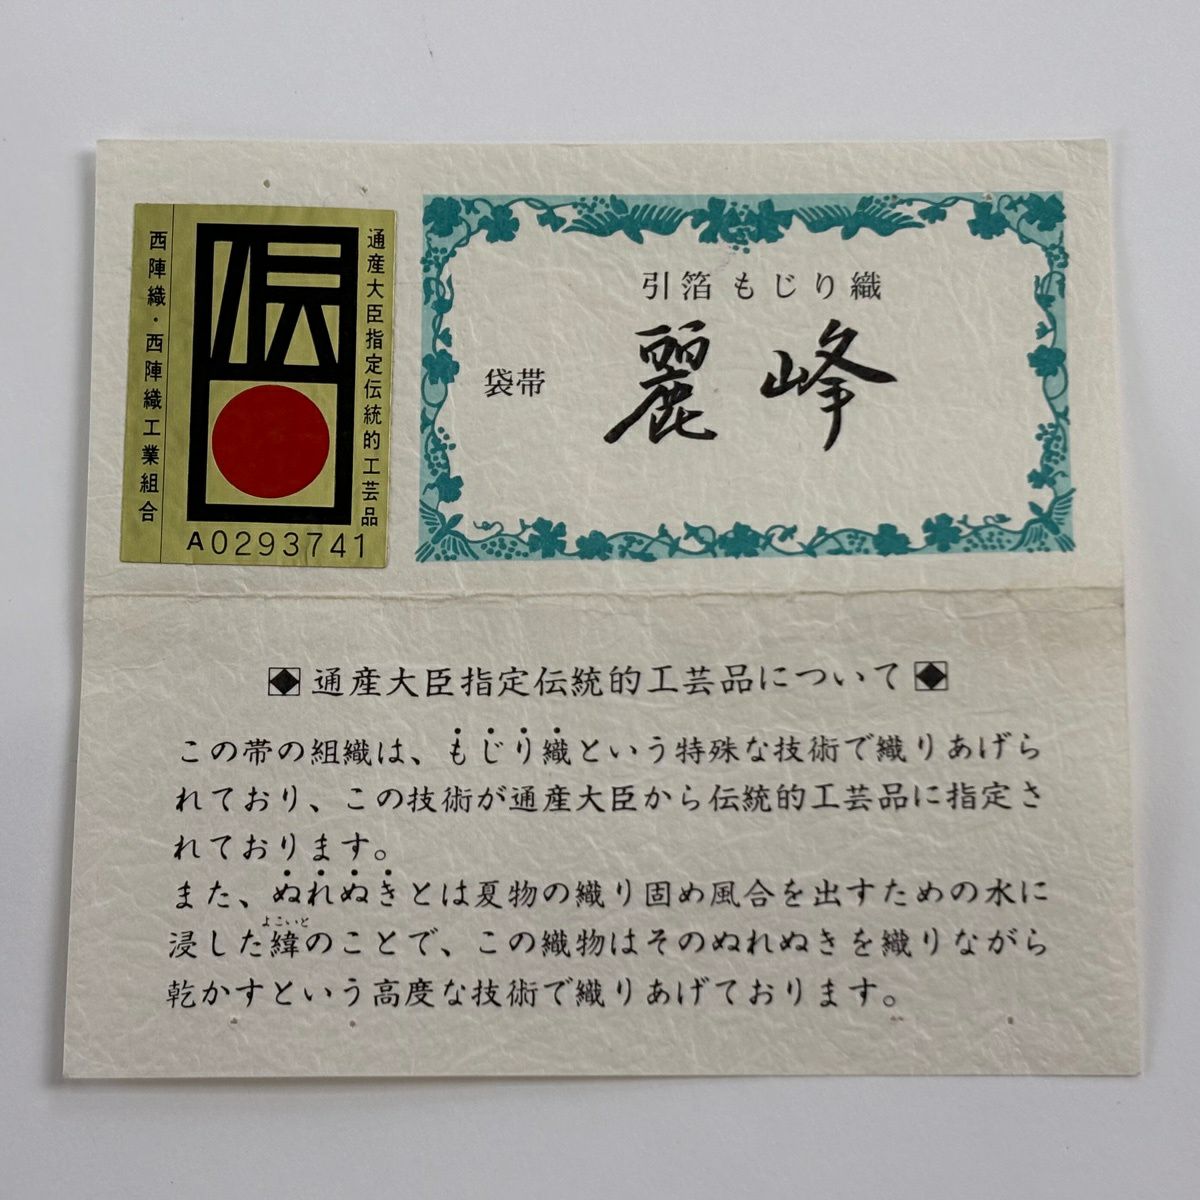 通産大臣指定伝統的工芸品
伝
西陣織・西陣織工業組合
A0293741
引箔 もじり織
袋帯
麗峰
通産大臣指定伝統的工芸品について
この帯の組織は、もじり織という特殊な技術で織りあげら
れており、この技術が通産大臣から伝統的工芸品に指定さ
れております。
また、ぬれぬきとは夏物の織り固め風合を出すための水に
よこいと
浸した緯のことで、この織物はそのぬれぬきを織りながら
乾かすという高度な技術で織りあげております。